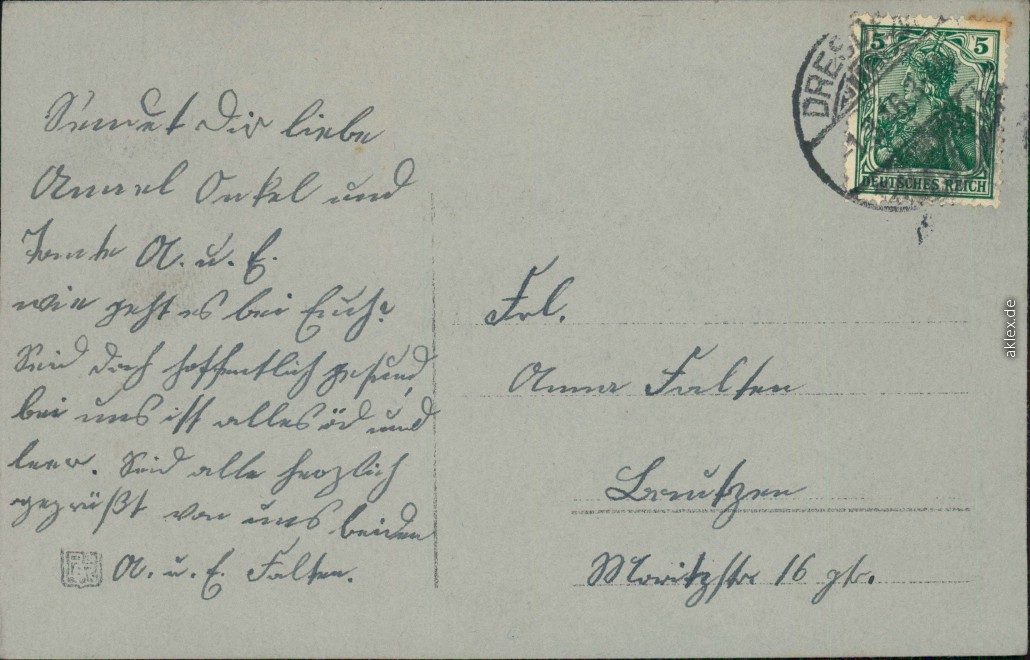 Sendet Dir liebe
Onkel und
Tante A. u. E.
wie geht es bei Euch?
Seid doch hoffentlich gesund,
bei uns ist alles öd und
leer. Seid alle herzlich
gegrüßt von uns beiden
A. u. E. Falten.
DRESDEN
5 5
DEUTSCHES REICH
Frl.
Anna Falten
Bautzen
Moritzstr. 16 ptr.
aklex.de